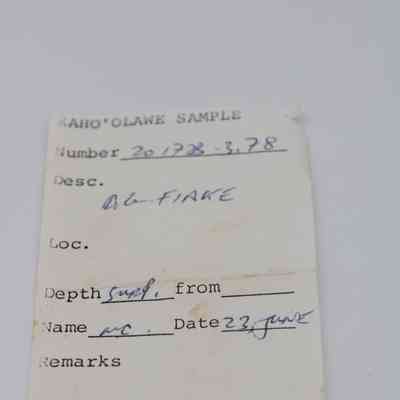 KAHO'OLAWE SAMPLE
Number 20 1728-3,78
Desc.
FLAKE
Loc.
Depth surf. from
Name MC. Date 23, JUNE
Remarks